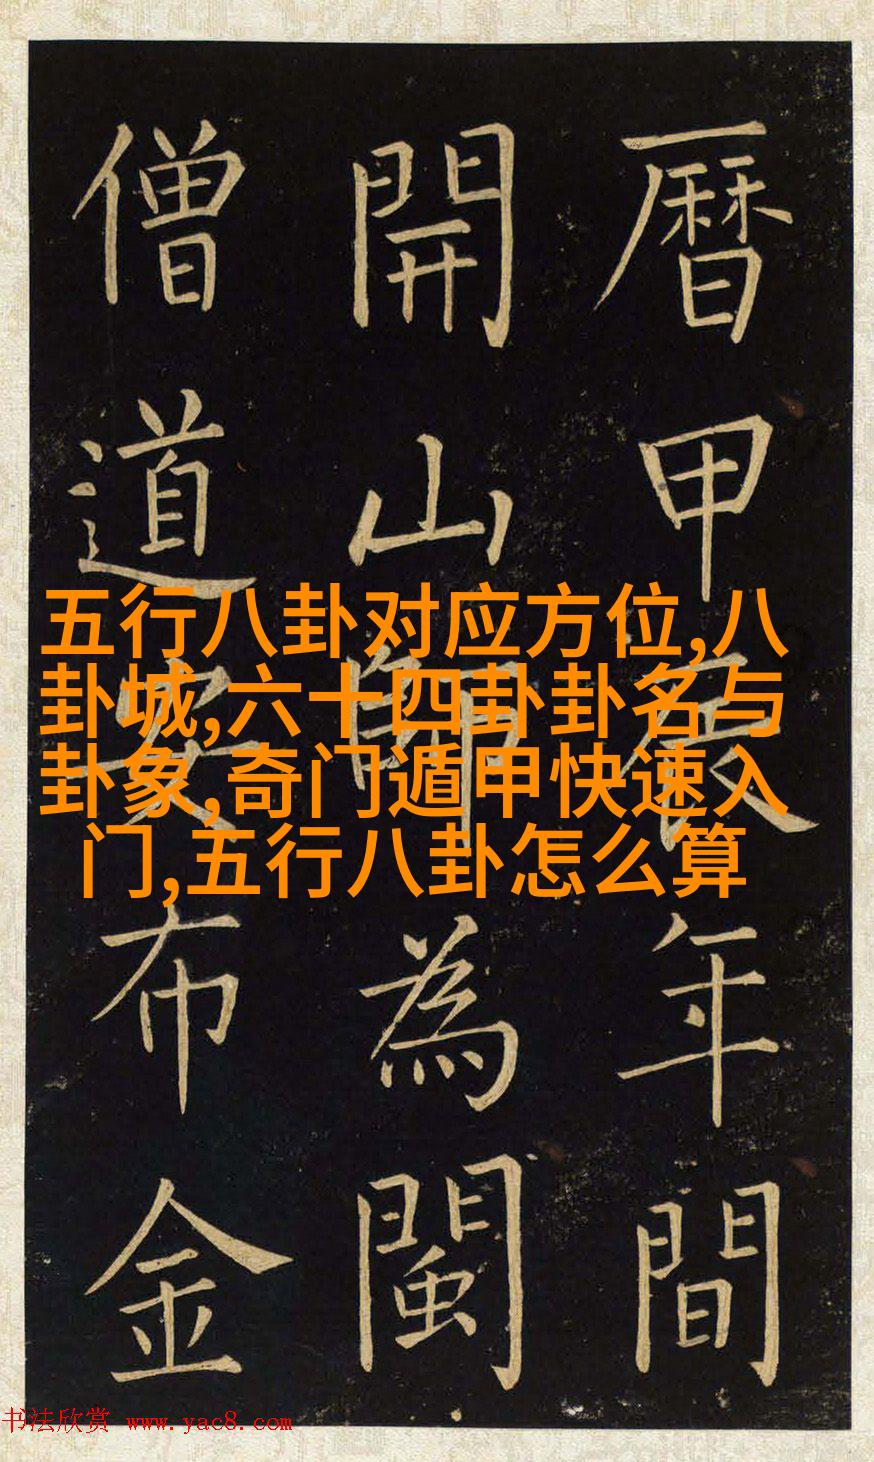 曆甲辰年間
開山師為閩
僧道安布金
五行八卦对应方位,八
卦城,六十四卦卦名与
卦象,奇门遁甲快速入
门,五行八卦怎么算
书法欣赏 www.yac8.com